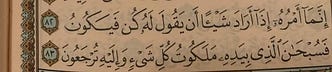 إِنَّمَآ أَمۡرُهُۥٓ إِذَآ أَرَادَ شَيۡـًٔا أَن يَقُولَ لَهُۥ كُن فَيَكُونُ ٨٢
فَسُبۡحَٰنَ ٱلَّذِي بِيَدِهِۦ مَلَكُوتُ كُلِّ شَيۡءٖ وَإِلَيۡهِ تُرۡجَعُونَ ٨٣